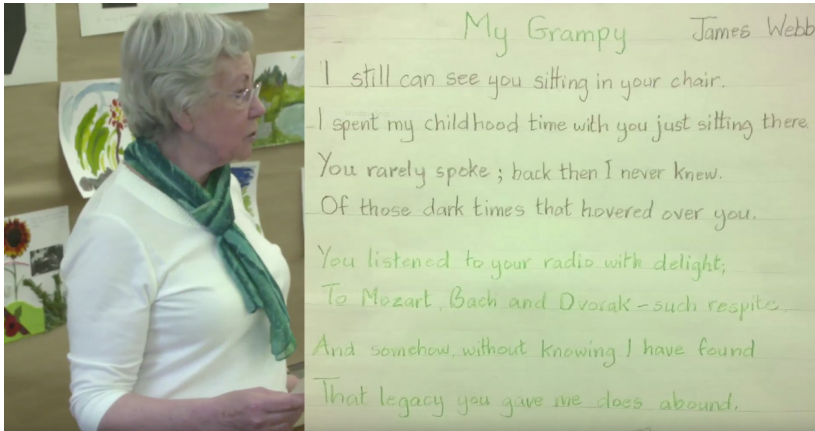 My Grampy James Webb
I still can see you sitting in your chair.
I spent my childhood time with you just sitting there
You rarely spoke ; back then I never knew.
Of those dark times that hovered over you.
You listened to your radio with delight;
To Mozart, Bach and Dvorak – such respite.
And somehow, without knowing I have found
That legacy you gave me does abound.